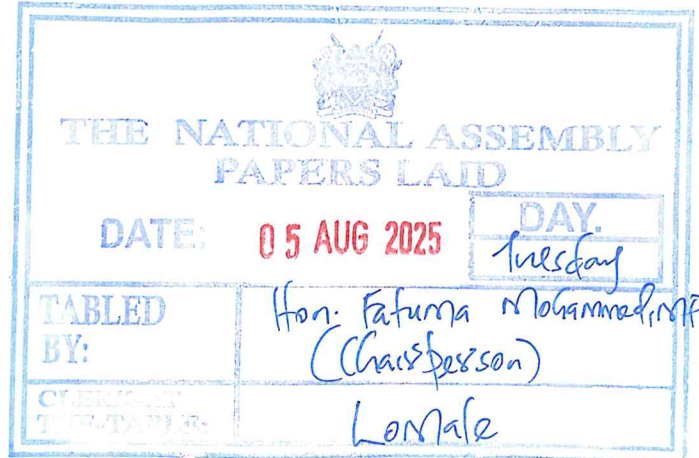 THE NATIONAL ASSEMBLY
PAPERS LAID
DATE: 05 AUG 2025
DAY.
Tuesday
TABLED BY:
Hon. Fatuma Mohammed, MP
(Chairperson)
CLERK-AT THE-TABLE: